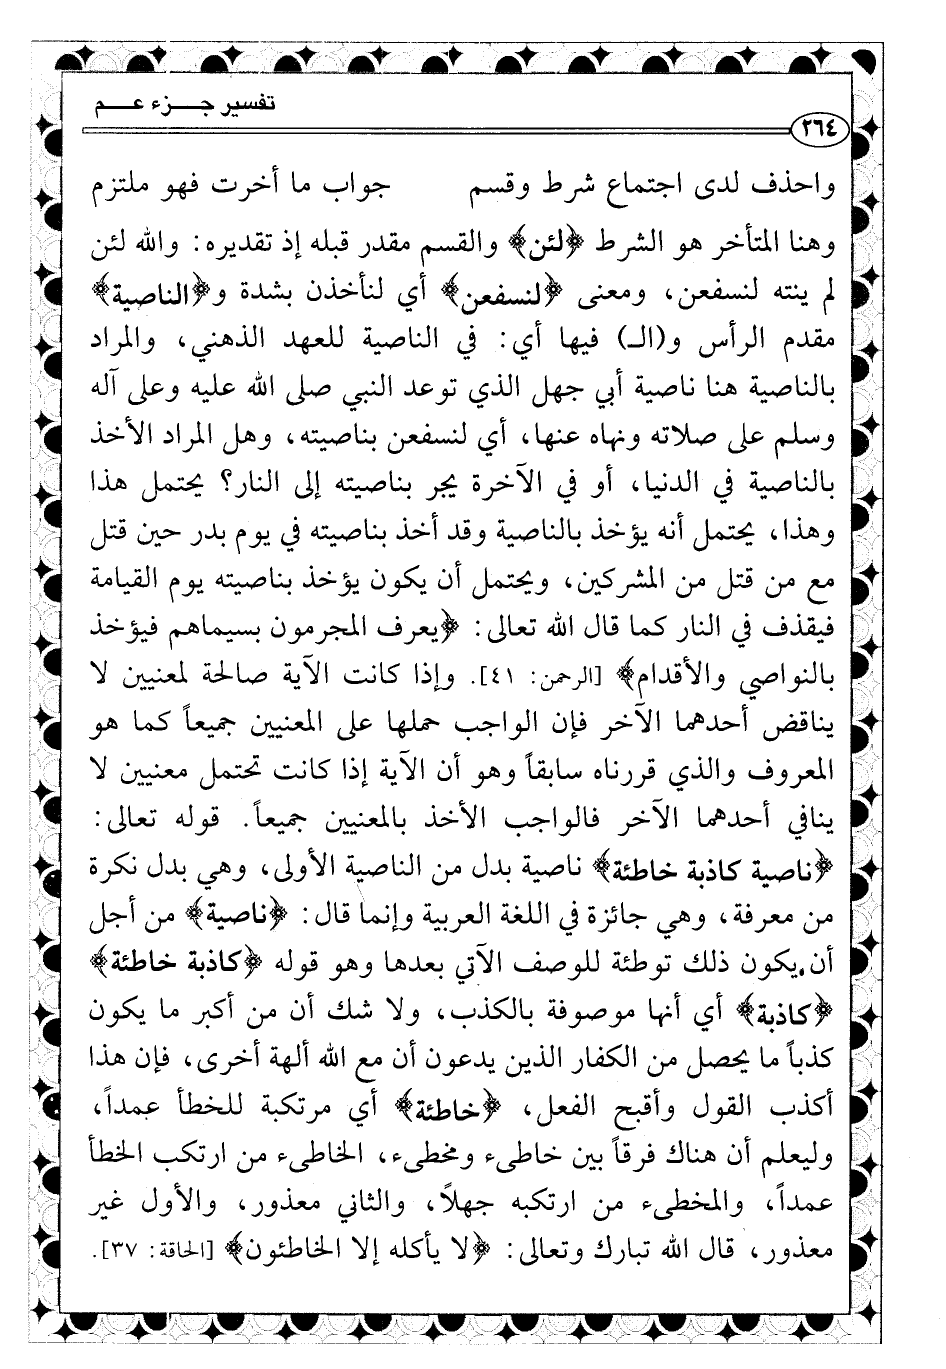 تفسير جـــزء عـــم
٢٦٤
واحذف لدى اجتماع شرط وقسم جواب ما أخرت فهو ملتزم
وهنا المتأخر هو الشرط ﴿لئن﴾ والقسم مقدر قبله إذ تقديره: والله لئن
لم ينته لنسفعن، ومعنى ﴿لنسفعن﴾ أي لنأخذن بشدة و﴿الناصية﴾
مقدم الرأس و(الـ) فيها أي: في الناصية للعهد الذهني، والمراد
بالناصية هنا ناصية أبي جهل الذي توعد النبي صلى الله عليه وعلى آله
وسلم على صلاته ونهاه عنها، أي لنسفعن بناصيته، وهل المراد الأخذ
بالناصية في الدنيا، أو في الآخرة يجر بناصيته إلى النار؟ يحتمل هذا
وهذا، يحتمل أنه يؤخذ بالناصية وقد أخذ بناصيته في يوم بدر حين قتل
مع من قتل من المشركين، ويحتمل أن يكون يؤخذ بناصيته يوم القيامة
فيقذف في النار كما قال الله تعالى: ﴿يعرف المجرمون بسيماهم فيؤخذ
بالنواصي والأقدام﴾ [الرحمن: ٤١]. وإذا كانت الآية صالحة لمعنيين لا
يناقض أحدهما الآخر فإن الواجب حملها على المعنيين جميعاً كما هو
المعروف والذي قررناه سابقاً وهو أن الآية إذا كانت تحتمل معنيين لا
ينافي أحدهما الآخر فالواجب الأخذ بالمعنيين جميعاً. قوله تعالى:
﴿ناصية كاذبة خاطئة﴾ ناصية بدل من الناصية الأولى، وهي بدل نكرة
من معرفة، وهي جائزة في اللغة العربية وإنما قال: ﴿ناصية﴾ من أجل
أن يكون ذلك توطئة للوصف الآتي بعدها وهو قوله ﴿كاذبة خاطئة﴾
﴿كاذبة﴾ أي أنها موصوفة بالكذب، ولا شك أن من أكبر ما يكون
كذباً ما يحصل من الكفار الذين يدعون أن مع الله ألهة أخرى، فإن هذا
أكذب القول وأقبح الفعل، ﴿خاطئة﴾ أي مرتكبة للخطأ عمداً،
وليعلم أن هناك فرقاً بين خاطىء ومخطىء، الخاطىء من ارتكب الخطأ
عمداً، والمخطىء من ارتكبه جهلاً، والثاني معذور، والأول غير
معذور، قال الله تبارك وتعالى: ﴿لا يأكله إلا الخاطئون﴾ [الحاقة: ٣٧].